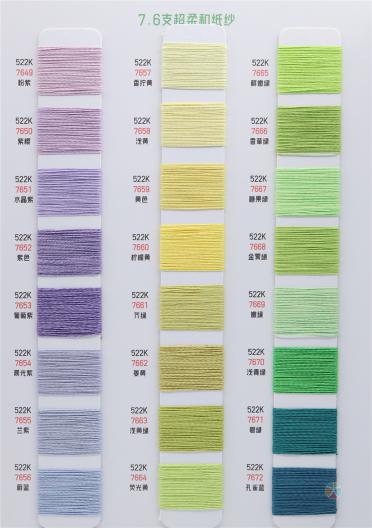 7.6支超柔和纸纱
522K
7649
粉紫
522K
7650
紫樱
522K
7651
水晶紫
522K
7652
紫色
522K
7653
葡萄紫
522K
7654
晨光紫
522K
7655
兰紫
522K
7656
蔚蓝
522K
7657
香柠黄
522K
7658
浅黄
522K
7659
黄色
522K
7660
柠檬黄
522K
7661
芥绿
522K
7662
姜黄
522K
7663
浅黄绿
522K
7664
荧光黄
522K
7665
鲜嫩绿
522K
7666
香草绿
522K
7667
糖果绿
522K
7668
金雾绿
522K
7669
嫩绿
522K
7670
浅青绿
522K
7671
碧绿
522K
7672
孔雀蓝